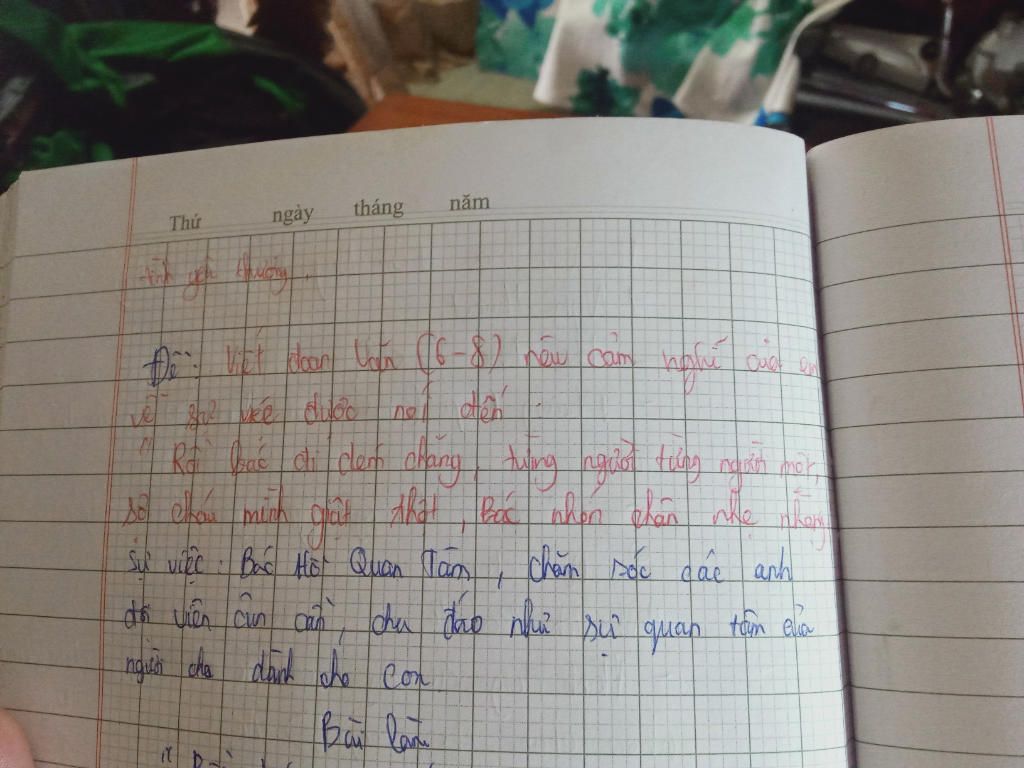 Thứ ngày tháng năm
tình yêu thương.
Đề: Viết đoạn văn (6-8) nêu cảm nghĩ của em
về sự việc được nói đến.
" Rồi Bác đi dém chăng, từng người từng người một,
sợ cháu mình giật thột, Bác nhón chân nhẹ nhàng
Sự việc: Bác Hồ Quan Tâm, chăm sóc các anh
đội viên ân cần, chu đáo như sự quan tâm của
người cha dành cho con
Bài làm